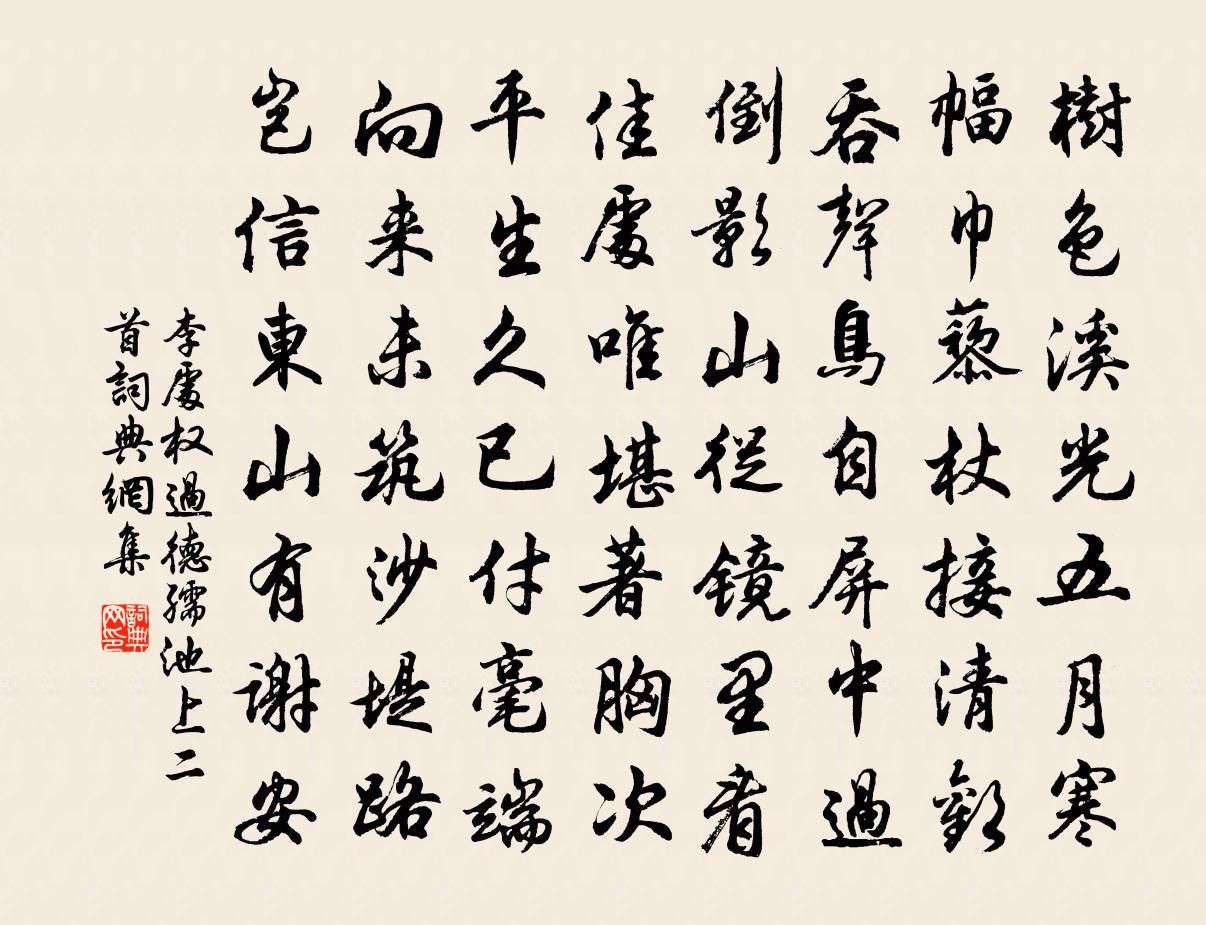 樹色溪光五月寒
幅巾藜杖接清歡
吞聲鳥自屏中過
倒影山從鏡里看
佳處唯堪著胸次
平生久已付毫端
向来未筑沙堤路
岂信東山有謝安
李處权過德孺池上二
首詞典網集
詞典网印